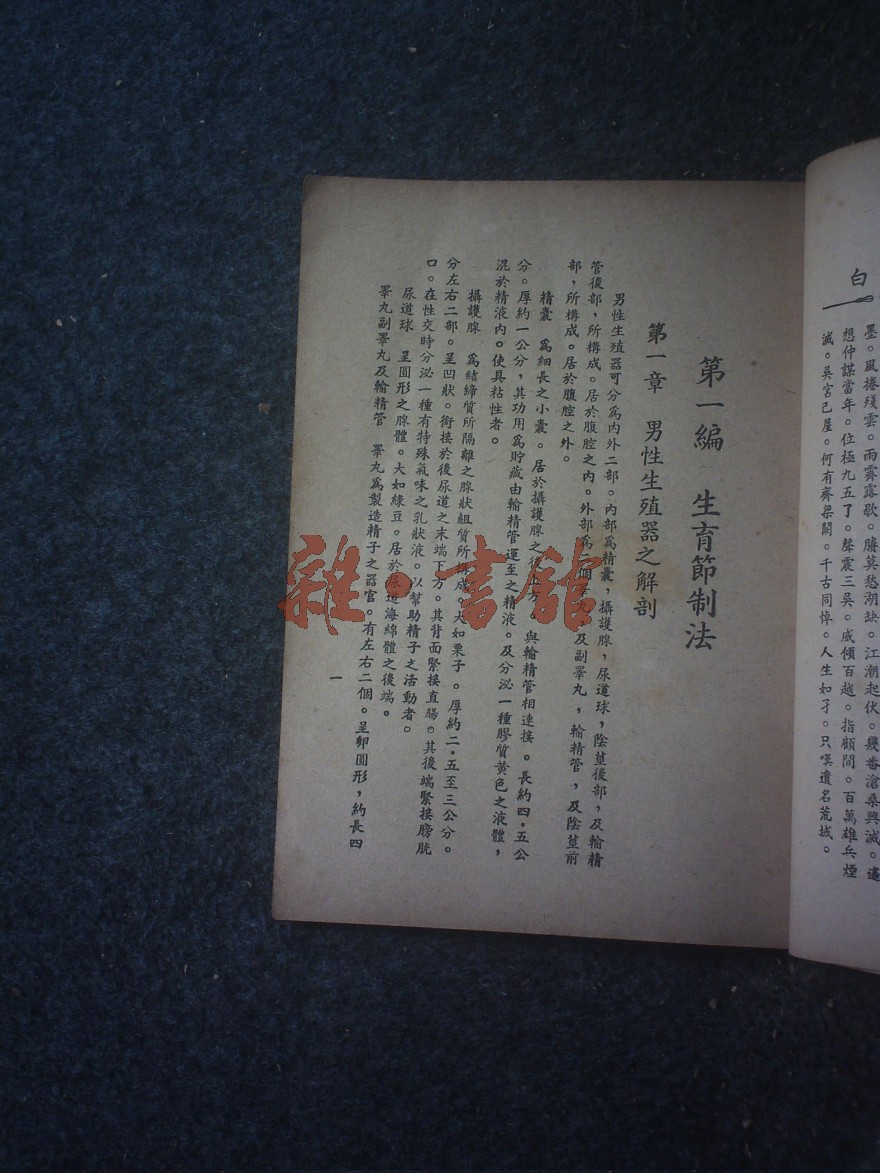 白
墨。風捲殘雲。雨霽露歌。勝莫愁湖缺。江潮起伏。幾番滄桑興滅。遙
想仲謀當年。位極九五了。聲震三吳。威傾百越。指顧間。百萬雄兵煙
滅。吳宮已屋。何有齊梁闕。千古同悼。人生如孑。只嘆遺名荒棫。
第一編　生育節制法
第一章　男性生殖器之解剖
男性生殖器可分爲內外二部。內部爲精囊，攝護腺，尿道球，陰莖後部，及輸精
管後部，所構成。居於腹腔之內。外部爲二個睪丸，及副睪丸，輸精管，及陰莖前
部，所構成。居於腹腔之外。
精囊　爲細長之小囊。居於攝護腺之後上方，與輸精管相連接。長約四．五公
分。厚約一公分，其功用爲貯藏由輸精管運至之精液。及分泌一種膠質黃色之液體，
混於精液內。使具粘性者。
攝護腺　爲結締質所隔離之腺狀組質所形成。大如栗子。厚約二．五至三公分。
分左右二部。呈凹狀。銜接於後尿道之末端下方。其背面緊接直腸。其後端緊接膀胱
口。在性交時分泌一種有特殊氣味之乳狀液。以幫助精子之活動者。
尿道球　呈圓形之腺體。大如綠豆。居於尿道海綿體之後端。
睪丸副睪丸及輸精管　睪丸爲製造精子之器官。有左右二個。呈卵圓形，約長四
一
雜·書館